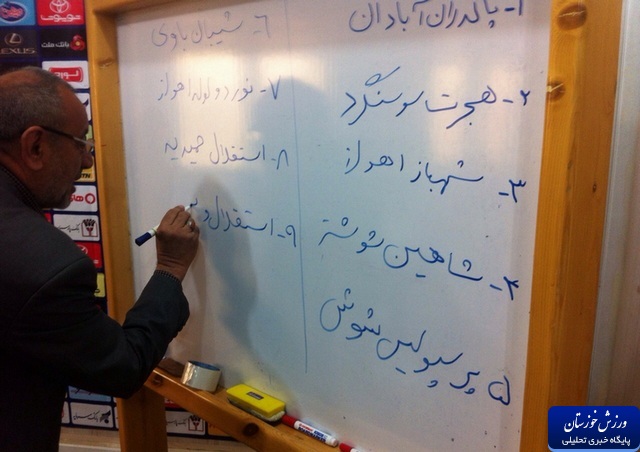 ۱- پاکدلان آبادان
۲- هجرت سوسنگرد
۳- شهباز اهواز
۴- شاهین شوشتر
۵ پرسپولیس شوش
۶- شیبان باوی
۷- نورد و لوله اهواز
۸- استقلال حمیدیه
۹- استقلال و
بانک ملت
LEXUS
ورزش خوزستان
پایگاه خبری تحلیلی